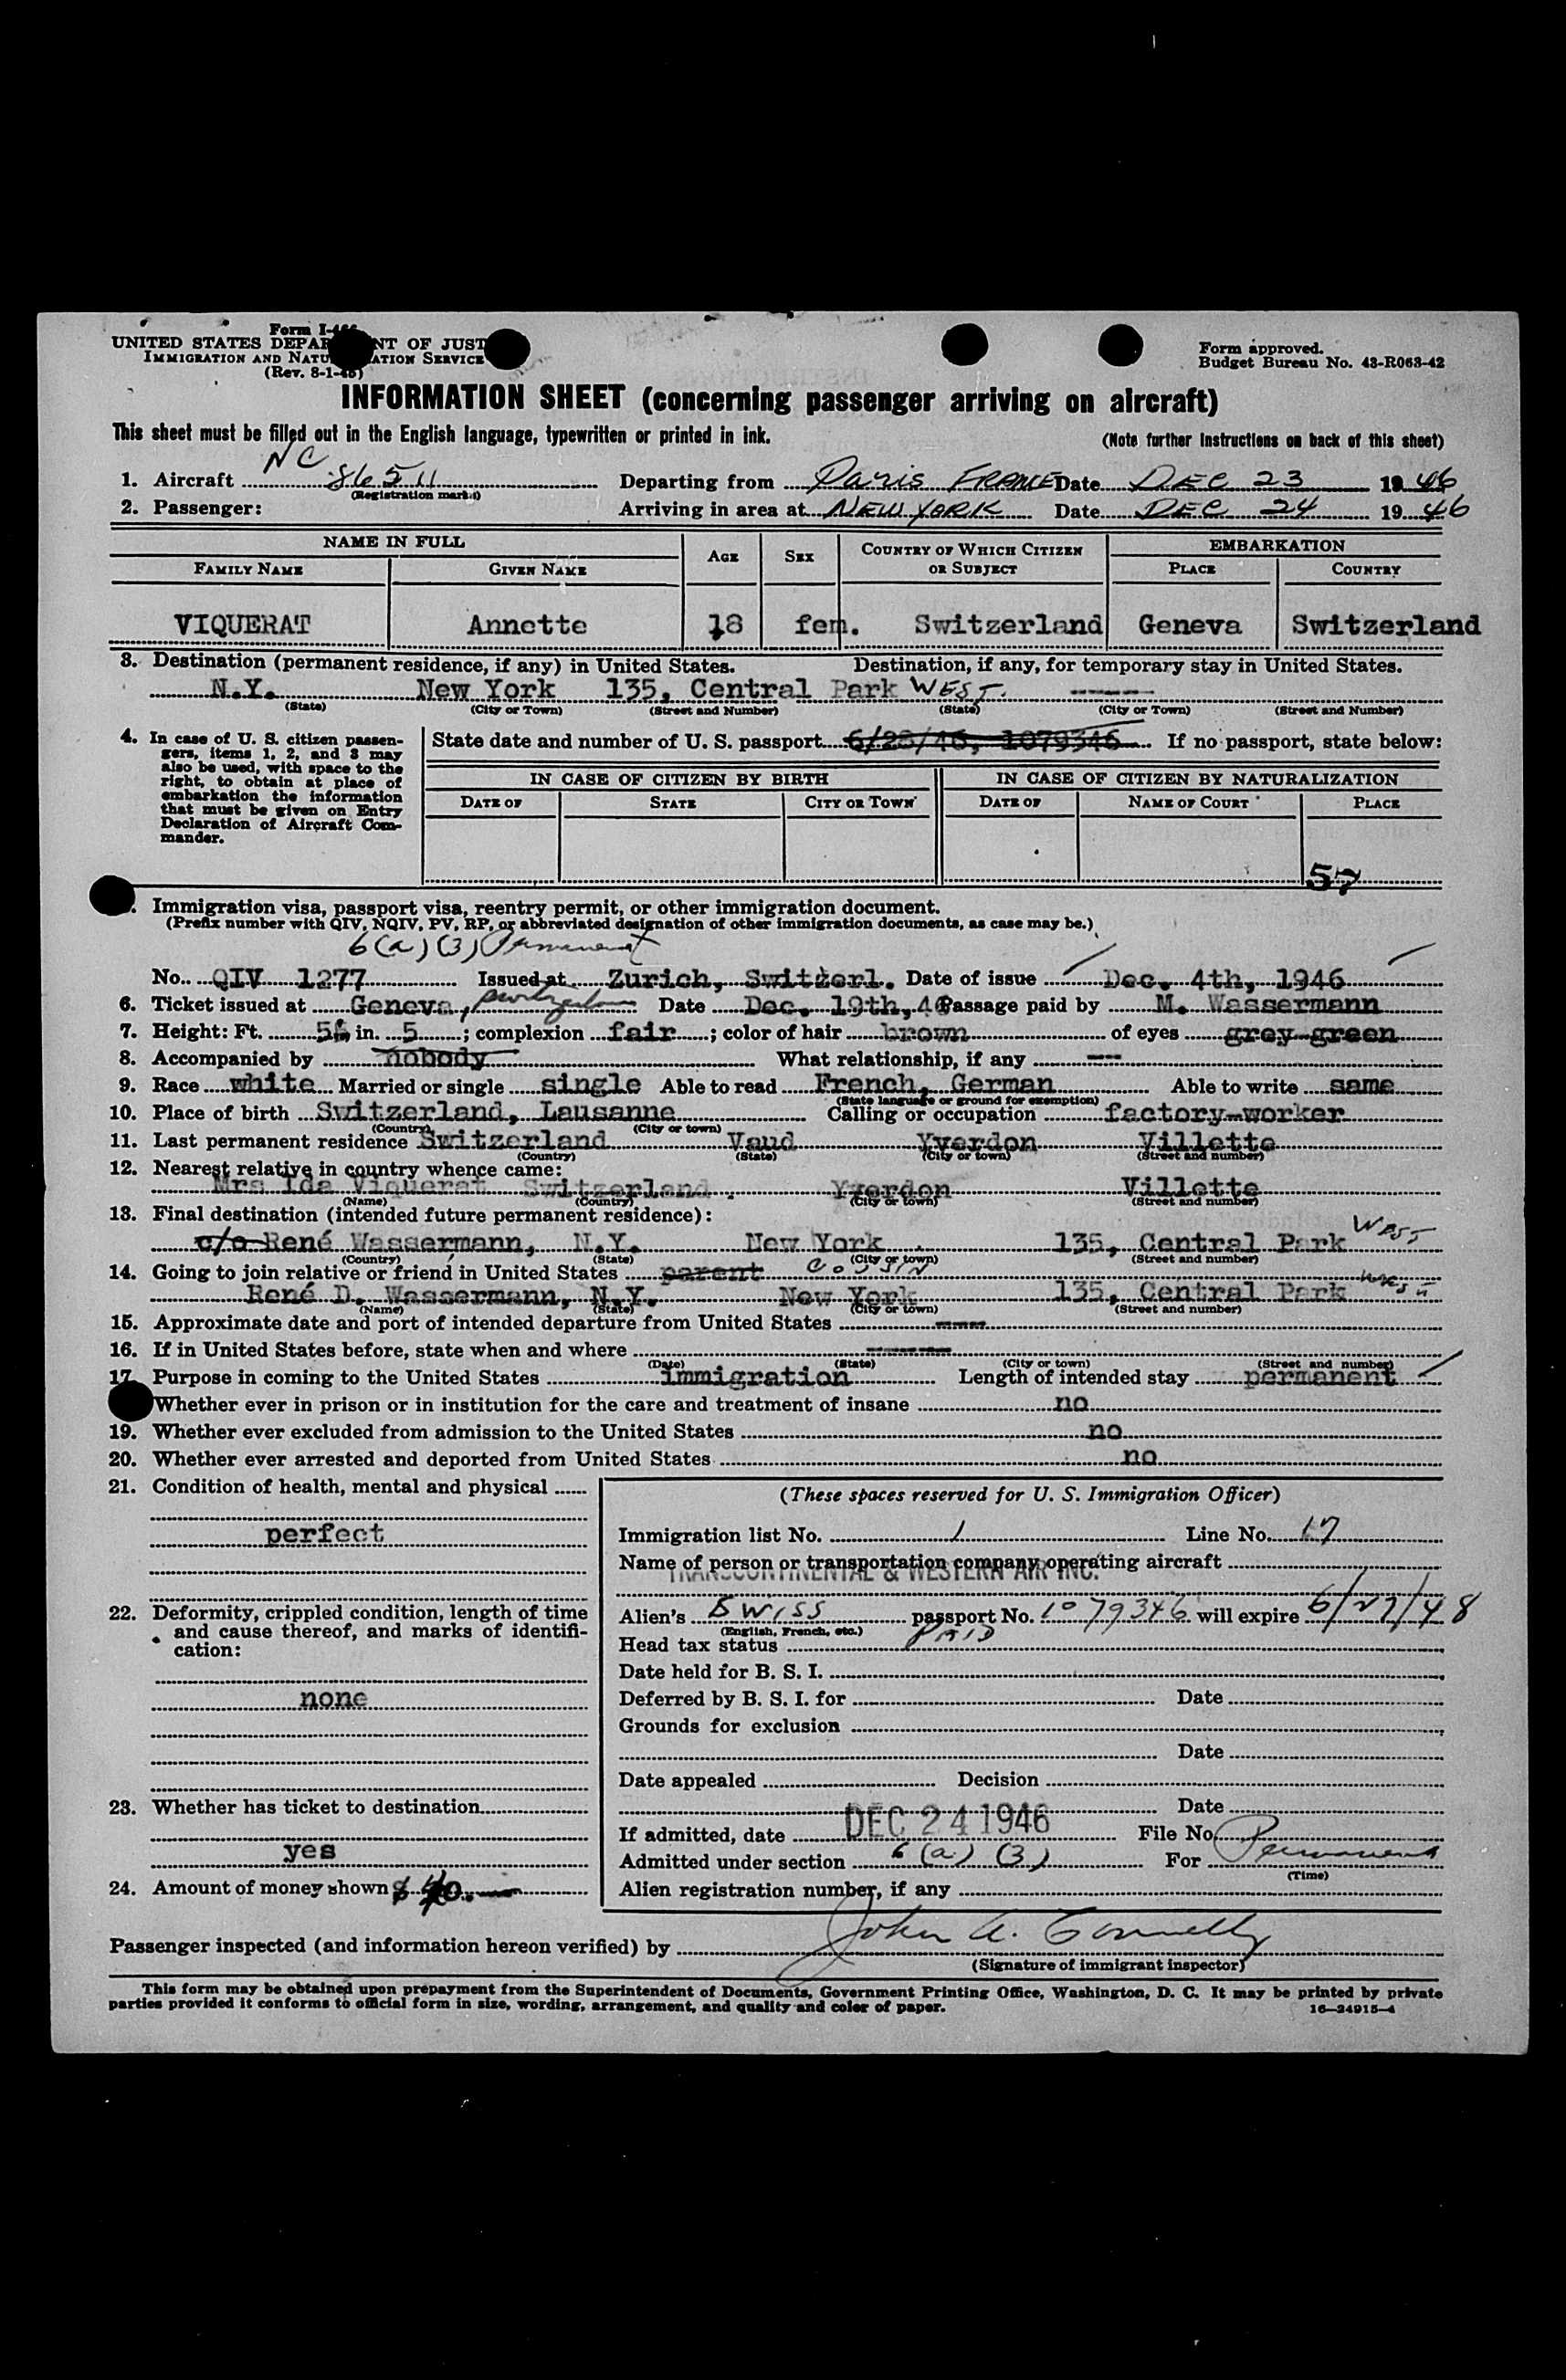 Form I-466
UNITED STATES DEPARTMENT OF JUST
IMMIGRATION AND NATURALIZATION SERVICE
(Rev. 8-1-45)
Form approved.
Budget Bureau No. 43-R063-42
INFORMATION SHEET (concerning passenger arriving on aircraft)
This sheet must be filled out in the English language, typewritten or printed in ink.
(Note further instructions on back of this sheet)
1. Aircraft NC 86511 Departing from Paris FRANCE Date DEC 23 1946
(Registration marks)
2. Passenger: Arriving in area at NEW YORK Date DEC 24 1946
NAME IN FULL AGE SEX COUNTRY OF WHICH CITIZEN OR SUBJECT EMBARKATION
FAMILY NAME GIVEN NAME PLACE COUNTRY
VIQUERAT Annette 18 fem. Switzerland Geneva Switzerland
3. Destination (permanent residence, if any) in United States. Destination, if any, for temporary stay in United States.
N.Y. New York 135, Central Park WEST. -----
(State) (City or Town) (Street and Number) (State) (City or Town) (Street and Number)
4. In case of U. S. citizen passen-
gers, items 1, 2, and 3 may
also be used, with space to the
right, to obtain at place of
embarkation the information
that must be given on Entry
Declaration of Aircraft Com-
mander.
State date and number of U. S. passport 6/28/46, 1079346 If no passport, state below:
IN CASE OF CITIZEN BY BIRTH IN CASE OF CITIZEN BY NATURALIZATION
DATE OF STATE CITY OR TOWN DATE OF NAME OF COURT PLACE
57
Immigration visa, passport visa, reentry permit, or other immigration document.
(Prefix number with QIV, NQIV, PV, RP, or abbreviated designation of other immigration documents, as case may be.)
6(a)(3) Permanent
No. QIV 1277 Issued at Zurich, Switzerl. Date of issue Dec. 4th, 1946
6. Ticket issued at Geneva, Switzerland Date Dec. 19th, 46 Passage paid by M. Wassermann
7. Height: Ft. 5 in. 5 ; complexion fair ; color of hair brown of eyes grey-green
8. Accompanied by nobody What relationship, if any ---
9. Race white Married or single single Able to read French, German Able to write same
(State language or ground for exemption)
10. Place of birth Switzerland, Lausanne Calling or occupation factory-worker
(Country) (City or town)
11. Last permanent residence Switzerland Vaud Yverdon Villette
(Country) (State) (City or town) (Street and number)
12. Nearest relative in country whence came:
Mrs Ida Viquerat Switzerland. Yverdon Villette
(Name) (Country) (City or town) (Street and number)
13. Final destination (intended future permanent residence):
c/o René Wassermann, N.Y. New York 135, Central Park WEST
(Country) (State) (City or town) (Street and number)
14. Going to join relative or friend in United States parent COUSIN
René D. Wassermann, N.Y. New York 135, Central Park WEST
(Name) (State) (City or town) (Street and number)
15. Approximate date and port of intended departure from United States ----
16. If in United States before, state when and where -----
(Date) (State) (City or town) (Street and number)
17. Purpose in coming to the United States immigration Length of intended stay permanent
Whether ever in prison or in institution for the care and treatment of insane no
19. Whether ever excluded from admission to the United States no
20. Whether ever arrested and deported from United States no
21. Condition of health, mental and physical
perfect
22. Deformity, crippled condition, length of time
and cause thereof, and marks of identifi-
cation:
none
23. Whether has ticket to destination
yes
24. Amount of money shown $ 40.--
(These spaces reserved for U. S. Immigration Officer)
Immigration list No. 1 Line No. 17
Name of person or transportation company operating aircraft
TRANSCONTINENTAL & WESTERN AIR INC.
Alien's SWISS passport No. 1079346 will expire 6/27/48
(English, French, etc.)
Head tax status PAID
Date held for B. S. I.
Deferred by B. S. I. for Date
Grounds for exclusion
Date
Date appealed Decision
Date
If admitted, date DEC 24 1946 File No.
Admitted under section 6(a) (3) For Permanent
(Time)
Alien registration number, if any
Passenger inspected (and information hereon verified) by John A. Connelly
(Signature of immigrant inspector)
This form may be obtained upon prepayment from the Superintendent of Documents, Government Printing Office, Washington, D. C. It may be printed by private
parties provided it conforms to official form in size, wording, arrangement, and quality and color of paper.
16—24915-4